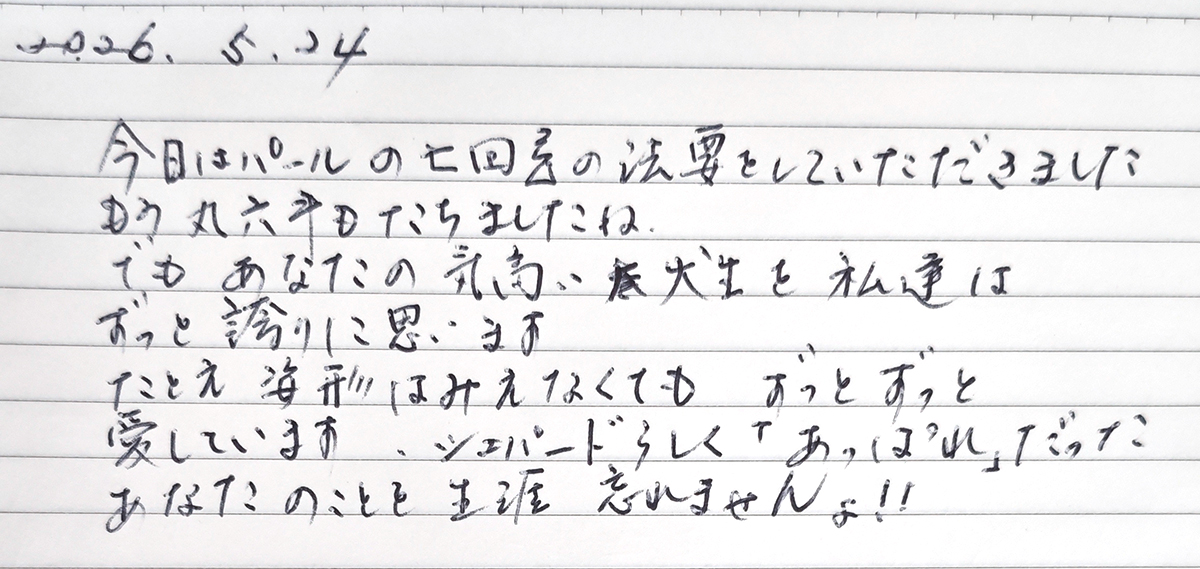 2026. 5. 24
今日はパールの七回忌の法要をしていただきました
もう丸六年もたちましたね.
でも あなたの気高い 犬生を 私達は
ずっと誇りに思います
たとえ 姿形はみえなくても ずっとずっと
愛しています、シェパードらしく「あっぱれ」だった
あなたのことを 生涯 忘れませんよ!!